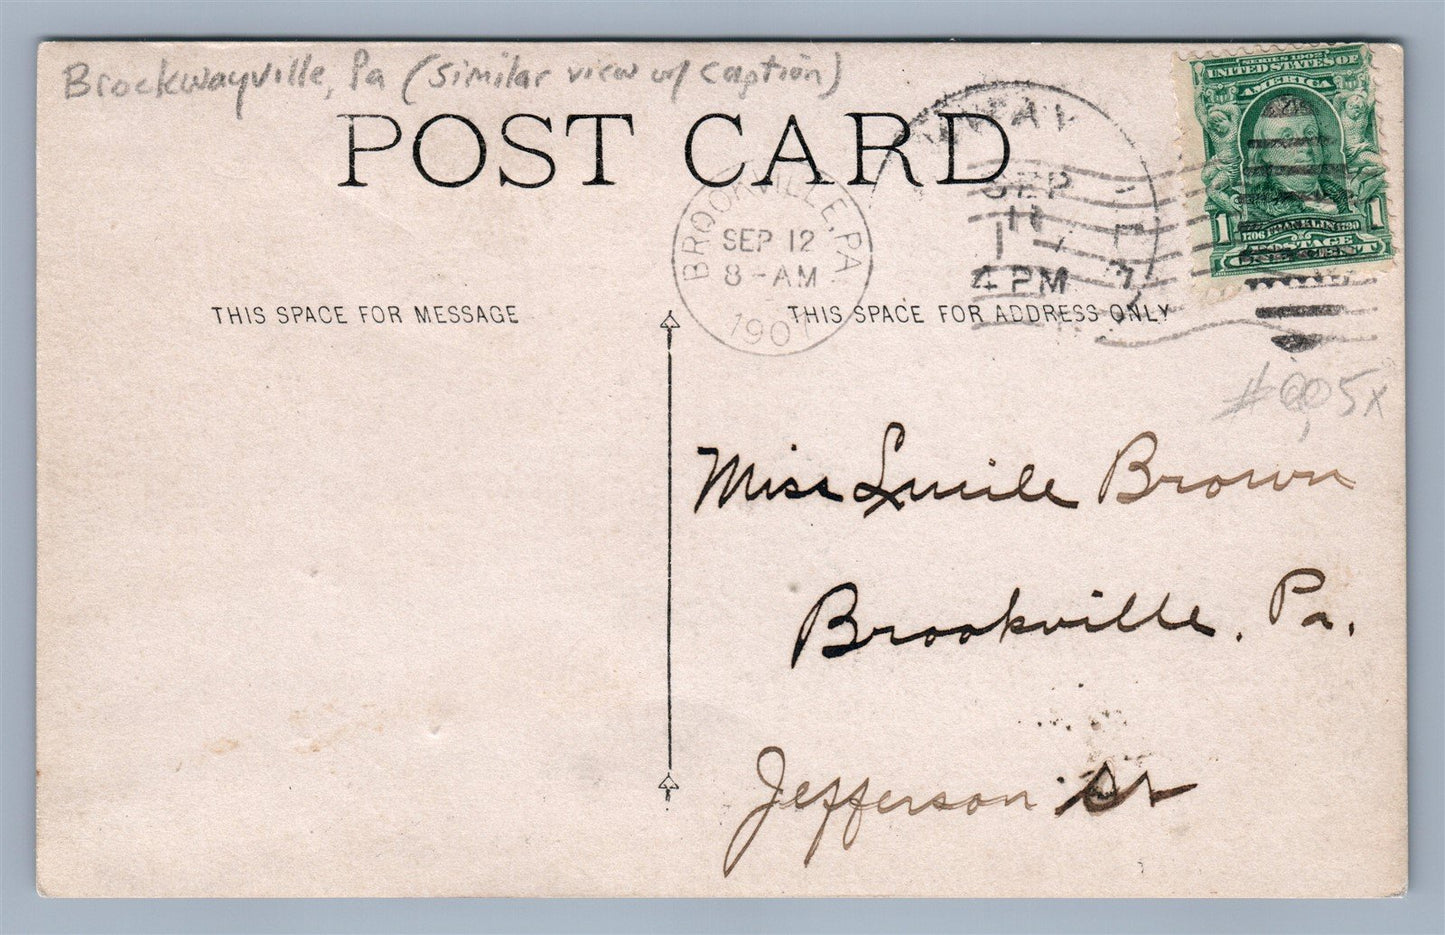 Brockwayville, Pa (similar view w/ caption)
POST CARD
SERIES 1902
UNITED STATES OF
AMERICA
1 1
1706 FRANKLIN 1790
POSTAGE
ONE CENT
BROOKVILLE, PA
SEP 12
8-AM
1907
SEP
11
4 PM
THIS SPACE FOR MESSAGE
THIS SPACE FOR ADDRESS ONLY
Miss Lucile Brown
Brookville, Pa.
Jefferson